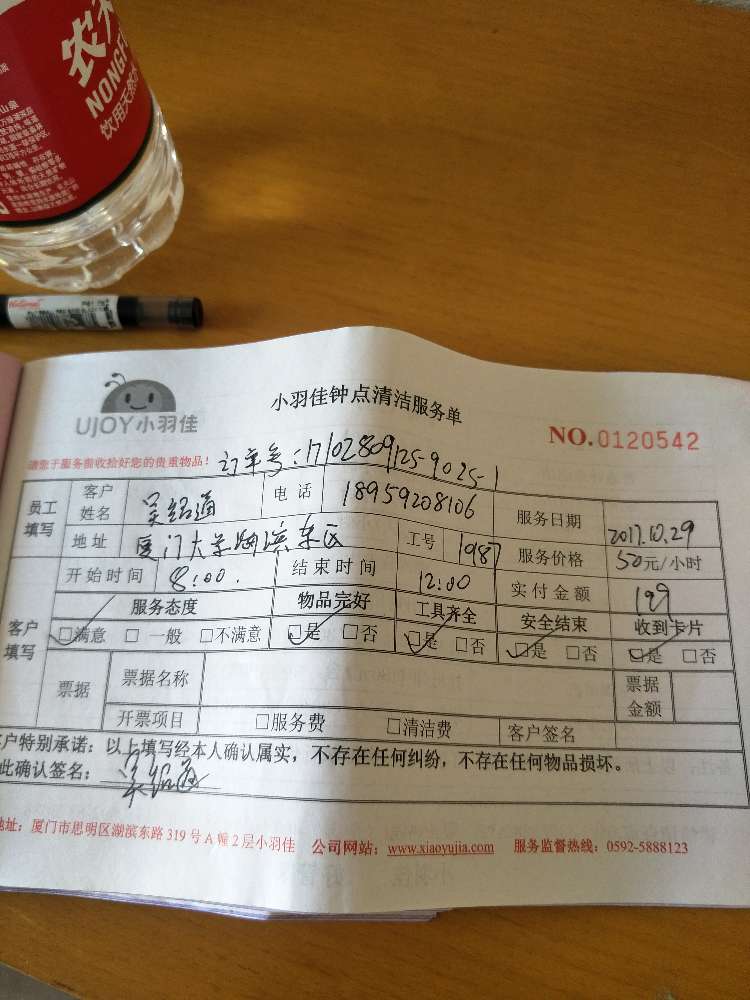 农夫
NONGFU
饮用天然水
UJOY小羽佳
小羽佳钟点清洁服务单
NO.0120542
请您于服务前收拾好您的贵重物品！
订单号：17102809125-9025-1
员工填写 客户姓名 吴绍通 电话 18959208106 服务日期 2017.10.29
地址 厦门大学海滨东区 工号 1987 服务价格 50元/小时
开始时间 8:00 结束时间 12:00 实付金额 199
客户填写 服务态度 物品完好 工具齐全 安全结束 收到卡片
☑满意 □一般 □不满意 ☑是 □否 ☑是 □否 ☑是 □否 ☑是 □否
票据 票据名称 票据金额
开票项目 □服务费 □清洁费 客户签名
客户特别承诺：以上填写经本人确认属实，不存在任何纠纷，不存在任何物品损坏。
此确认签名： 吴绍通
地址：厦门市思明区湖滨东路319号A幢2层小羽佳 公司网站：www.xiaoyujia.com 服务监督热线：0592-5888123